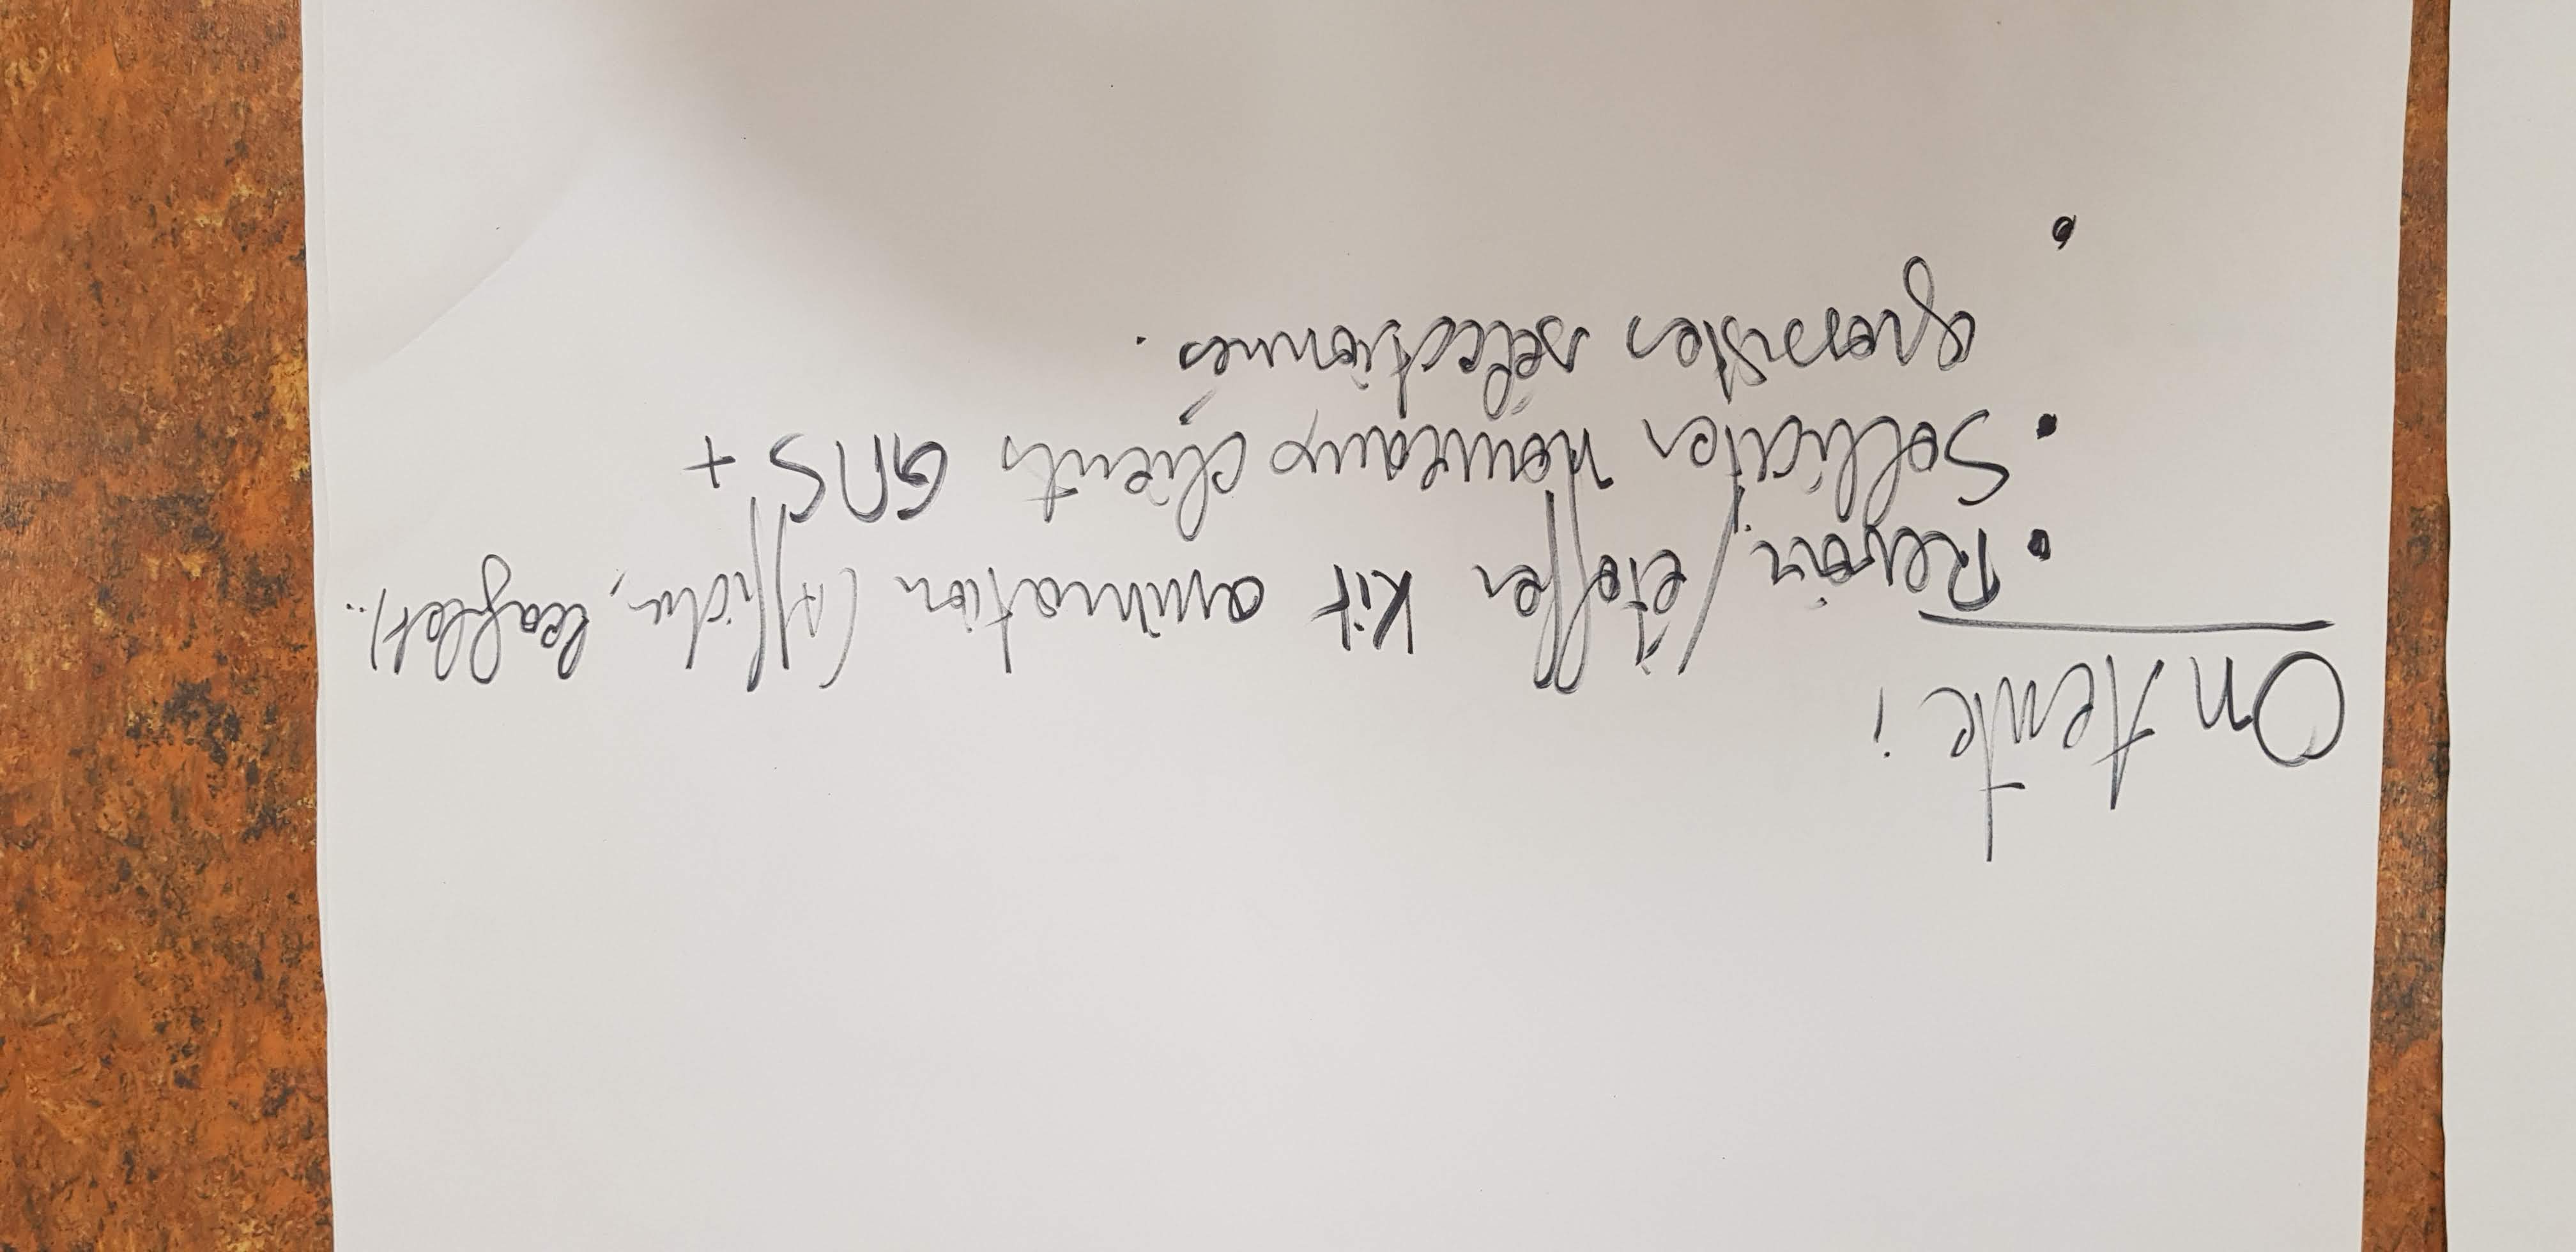 On tente :
• Revoir / étoffer kit animation (affiche, leaflet)...
• Solliciter nouveaux clients GMS +
grossistes sélectionnés.
•